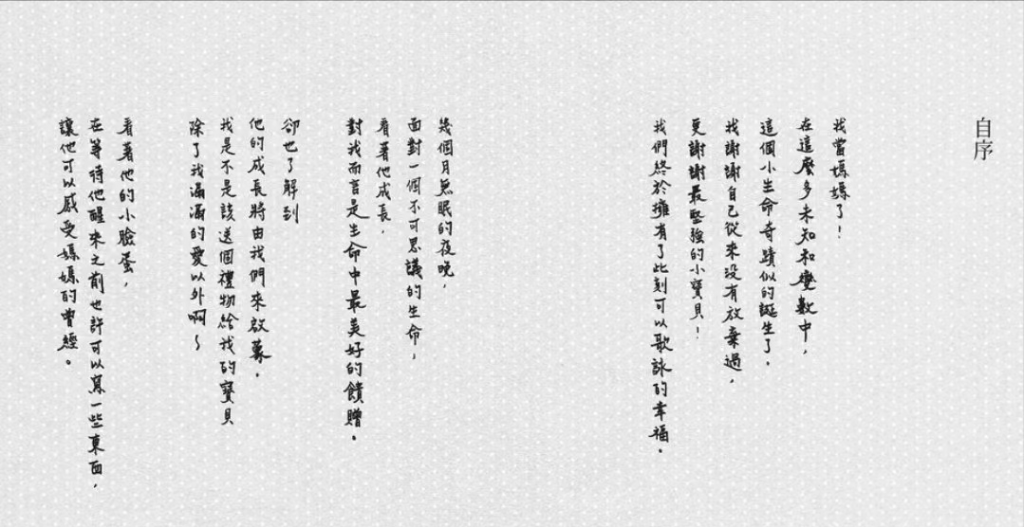 自序
我當媽媽了！
在這麼多未知和變數中，
這個小生命奇蹟似的誕生了。
我謝謝自己從來沒有放棄過，
更謝謝最堅強的小寶貝！
我們終於擁有了此刻可以歌詠的幸福。
幾個月無眠的夜晚，
面對一個不可思議的生命，
看著他成長，
對我而言是生命中最美好的饋贈。
卻也了解到
他的成長將由我們來啟蒙，
我是不是該送個禮物給我的寶貝
除了我滿滿的愛以外啊～
看著他的小臉蛋，
在等待他醒來之前也許可以寫一些東西，
讓他可以感受媽媽的曾經。